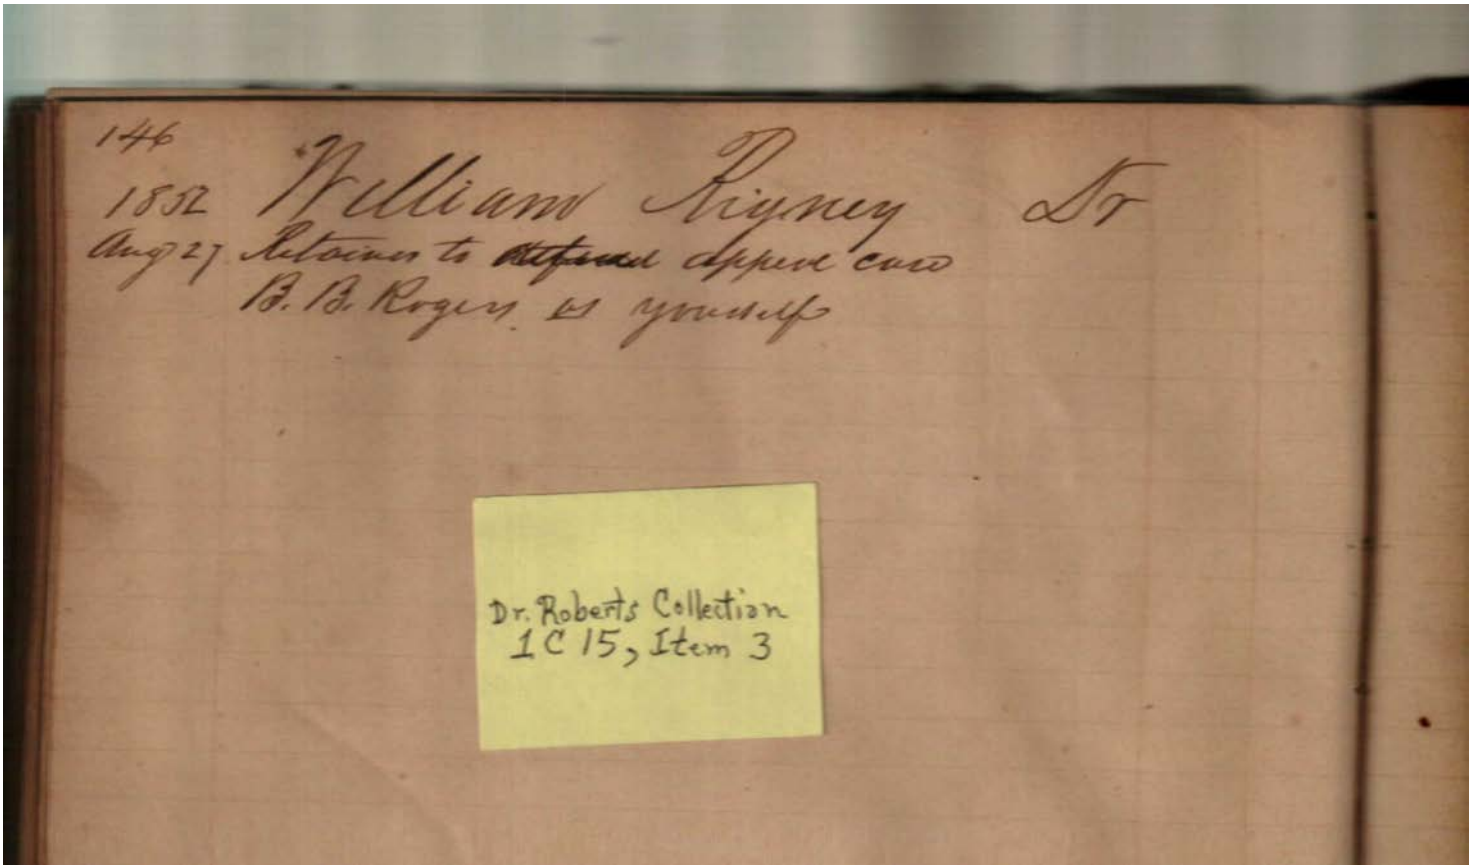 146
1852 William Rigney Dr
Aug 27 Retainer to defend appeal case
B. B. Rogers vs yourself
Dr. Roberts Collection
1 C 15, Item 3